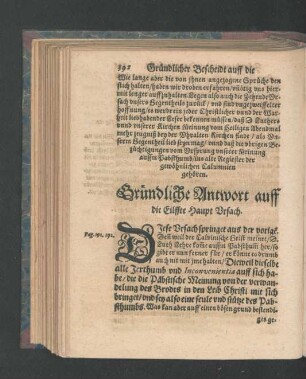 192 Gründlicher Bescheidt auff die
Wie lange aber die von jhnen angezogene Sprüche den
stich halten/ haben wir droben erfahren/ nötig uns hier
mit lenger auffzuhalten. Legen also auch die Zehende Ur
sach unsers Gegentheils zurück/ und sind
hoffnung/ es werde ein jeder Christlicher und der War
heit liebhabender Leser bekennen müssen/ das D. Luthers
und unserer Kirchen Meinung vom Heiligen Abendmal
mehr zeugnis bey der Uhralten Kirchen habe/ als Un
serm Gegentheil lieb sey
züchtigungen vom Ursprung unserer Meinung
aussm Pabsthumb/ ins alte Register der
gewöhnlichen Calumnien
gehören.
Gründliche Antwort auff
die Eilffte Haupt Ursach.
Pag. 191. 192.
Diese Ursach springet aus der vorigē.
Weil weil der Calvinische Geist meinet/ D.
Luth. Lehre komme aussm Pabsthumb her/ so
gibt er nun ferner für/ er könne es darumb
auch nit mit jme halten/ Dieweil dieselbe
alle Jrrthumb und Inconvenientia auff sich ha-
be/ die die Päbstische Meinung von der verwan-
delung des Brodes in den Leib Christi mit sich
bringet/ und sey also eine seule und stütze des Pab-
sthumbs. Was kan aber auff einen bösen grund bestendi-
ges ge-